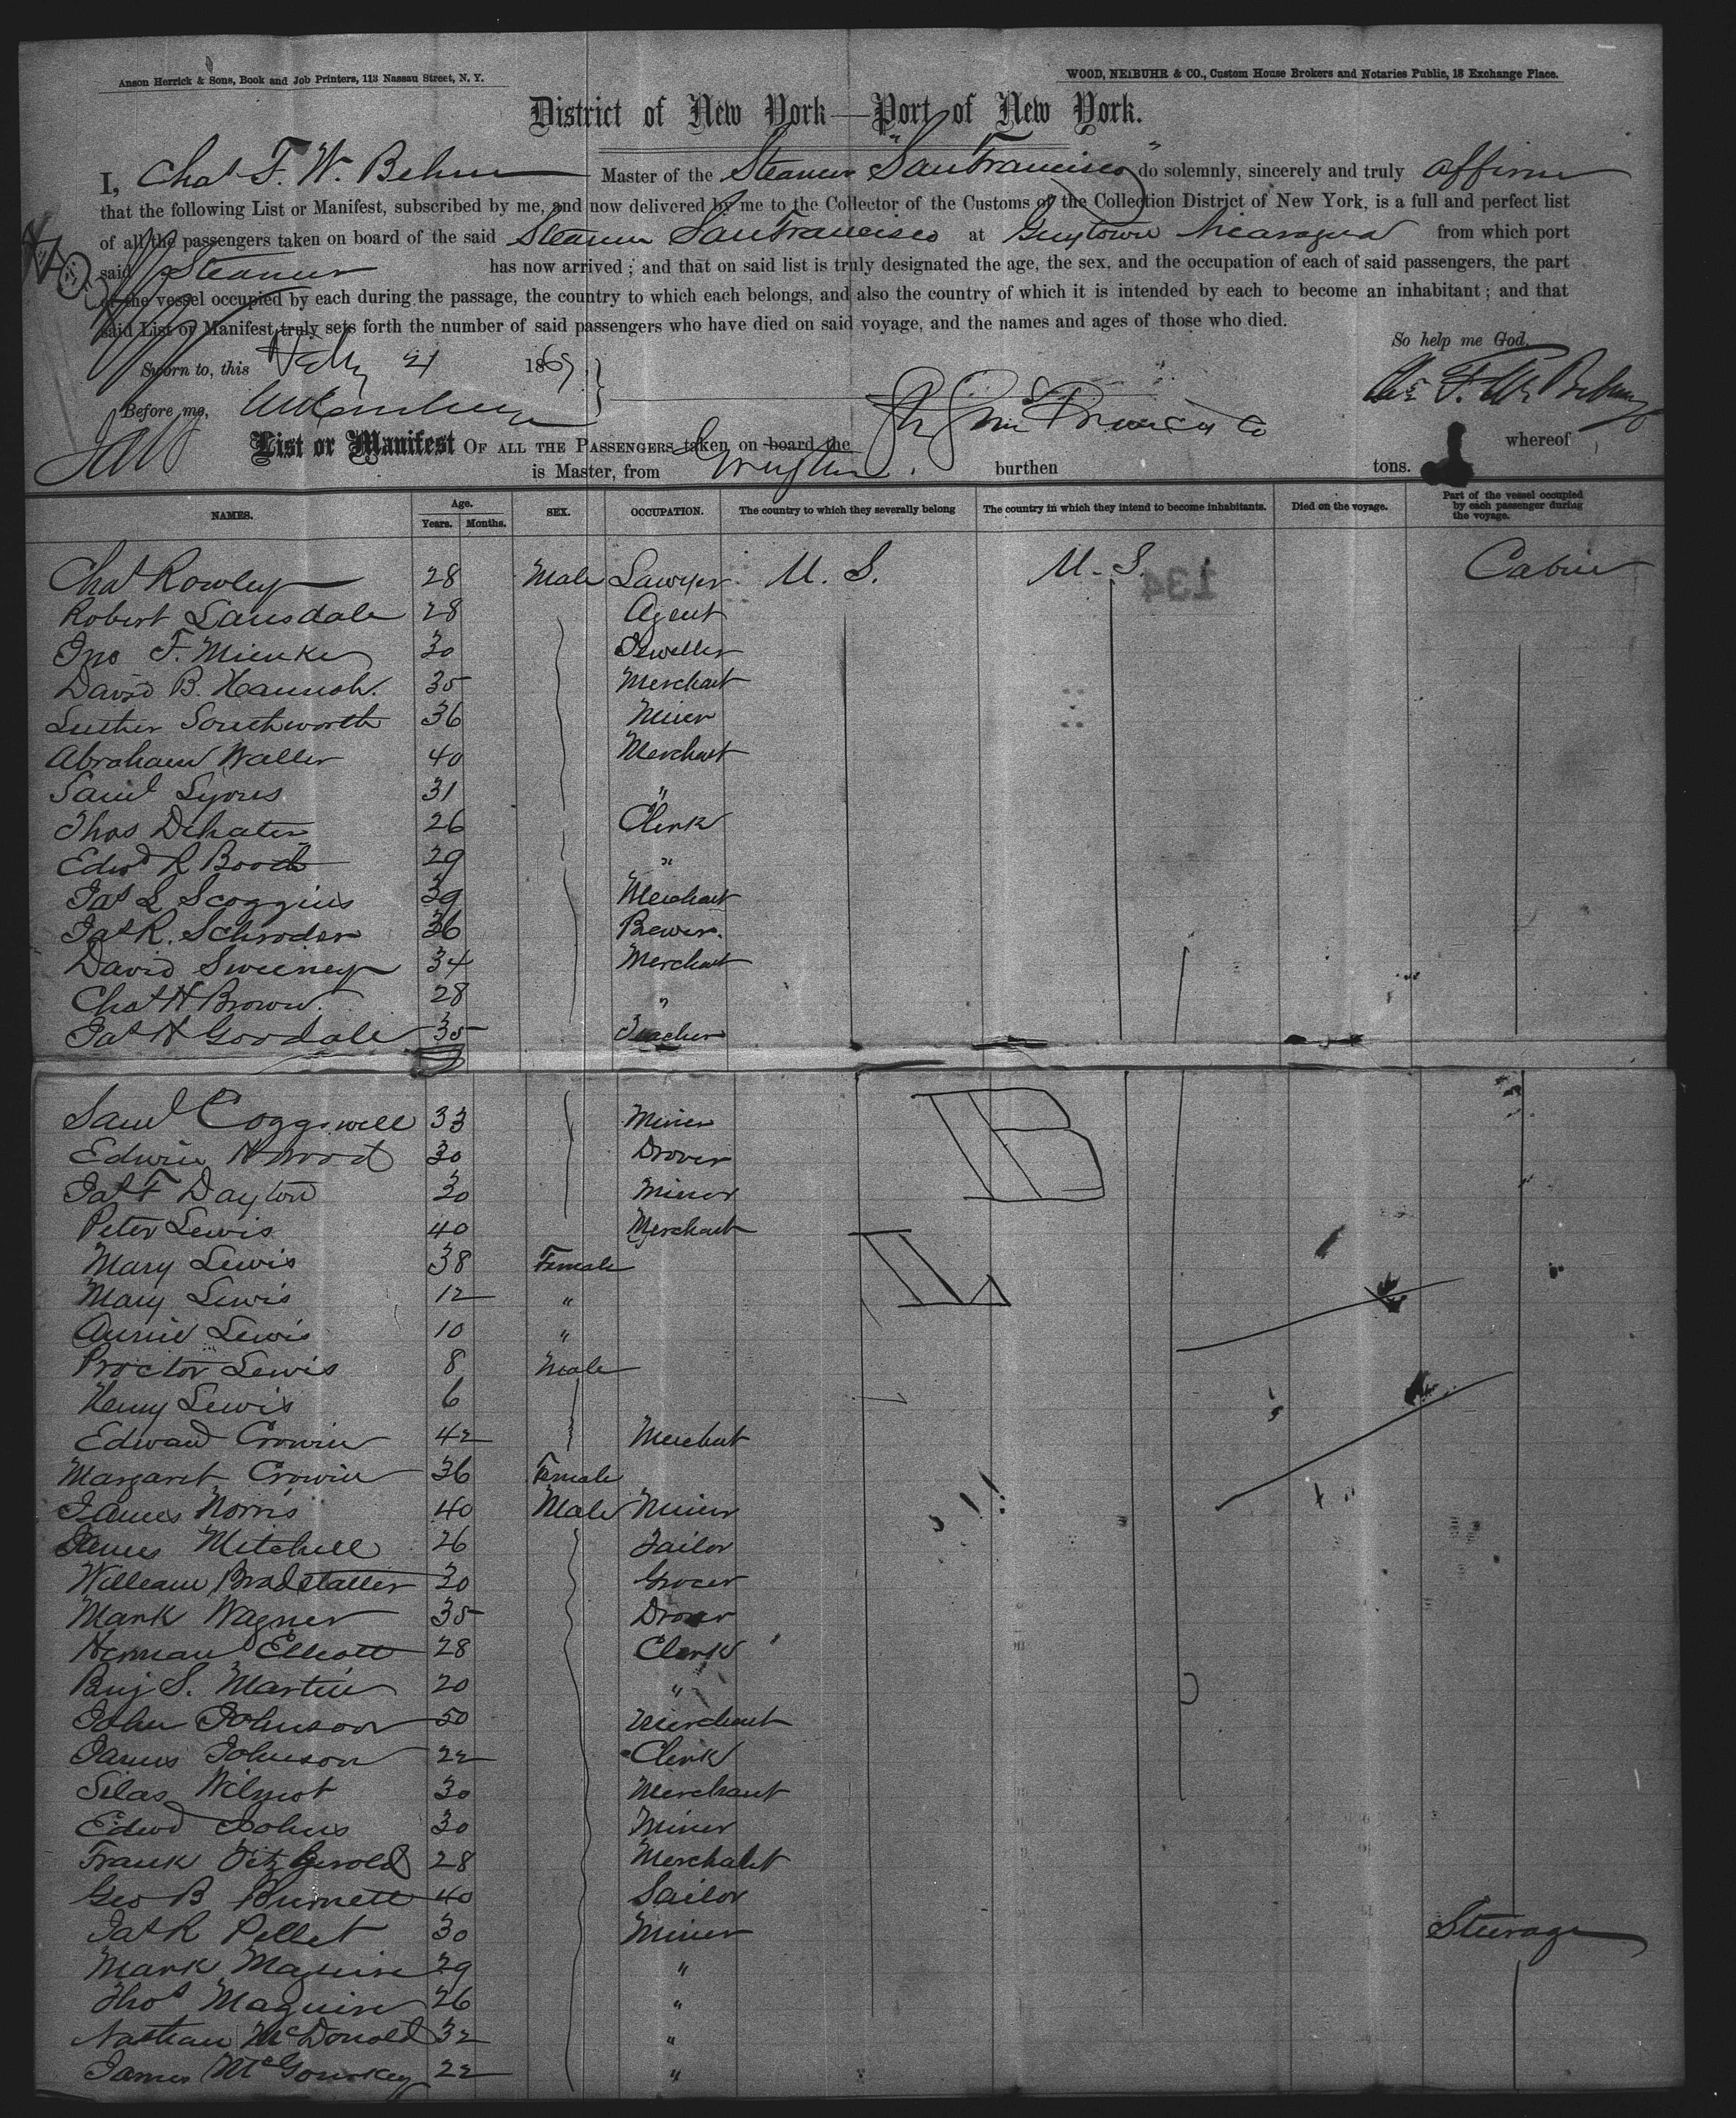 Anson Herrick & Sons, Book and Job Printers, 113 Nassau Street, N. Y.
WOOD, NEIBUHR & CO., Custom House Brokers and Notaries Public, 18 Exchange Place.
District of New York—Port of New York.
I, Chas F. W. Behm Master of the Steamer "San Francisco" do solemnly, sincerely and truly affirm
that the following List or Manifest, subscribed by me, and now delivered by me to the Collector of the Customs of the Collection District of New York, is a full and perfect list
of all the passengers taken on board of the said Steamer San Francisco at Greytown Nicaragua from which port
said Steamer has now arrived ; and that on said list is truly designated the age, the sex, and the occupation of each of said passengers, the part
of the vessel occupied by each during the passage, the country to which each belongs, and also the country of which it is intended by each to become an inhabitant ; and that
said List or Manifest truly sets forth the number of said passengers who have died on said voyage, and the names and ages of those who died.
So help me God.
Sworn to, this 21 186
Chs F. W. Behm
Before me,
List or Manifest OF ALL THE PASSENGERS taken on board the San Francisco whereof
is Master, from Greytown burthen tons.
NAMES. Age. Years. Months. SEX. OCCUPATION. The country to which they severally belong The country in which they intend to become inhabitants. Died on the voyage. Part of the vessel occupied by each passenger during the voyage.
134
Chas Rowley 28 Male Lawyer U. S. U. S. Cabin
Robert Lansdale 28 Agent
Jno F. Mienke 30 Jeweller
David B. Hannah. 35 Merchant
Luther Southworth 36 Miner
Abraham Waller 40 Merchant
Saml Lyons 31 "
Thos Dehater 26 Clerk
Edwd R Booth 29 "
Jas L Scoggins 39 Merchant
Jas R. Schroder 36 Brewer.
David Sweeney 34 Merchant
Chas H Brown. 28 "
Jas H Goodale 35 Teacher
Saml Coggswell 33 Miner
Edwin H Wood 30 Drover
Jas F Dayton 30 Miner
Peter Lewis 40 Merchant
Mary Lewis 38 Female
Mary Lewis 12 "
Annie Lewis 10 "
Proctor Lewis 8 Male
Henry Lewis 6
Edward Crowin 42 Merchant
Margaret Crowin 36 Female
James Norris 40 Male Miner
James Mitchell 26 Tailor
William Bradstatter 30 Grocer
Mark Wagner 35 Drover
Herman Elliott 28 Clerk
Benj S. Martin 20 "
John Johnson 50 Merchant
James Johnson 22 Clerk
Silas Wilmot 30 Merchant
Edwd Johns 30 Miner
Frank Fitzgerald 28 Merchant
Geo B Burnett 40 Sailor
Jas R Pellet 30 Miner Steerage
Mark Maguire 29 "
Thos Maguire 26 "
Nathan McDonald 32 "
James McGourkey 22 "